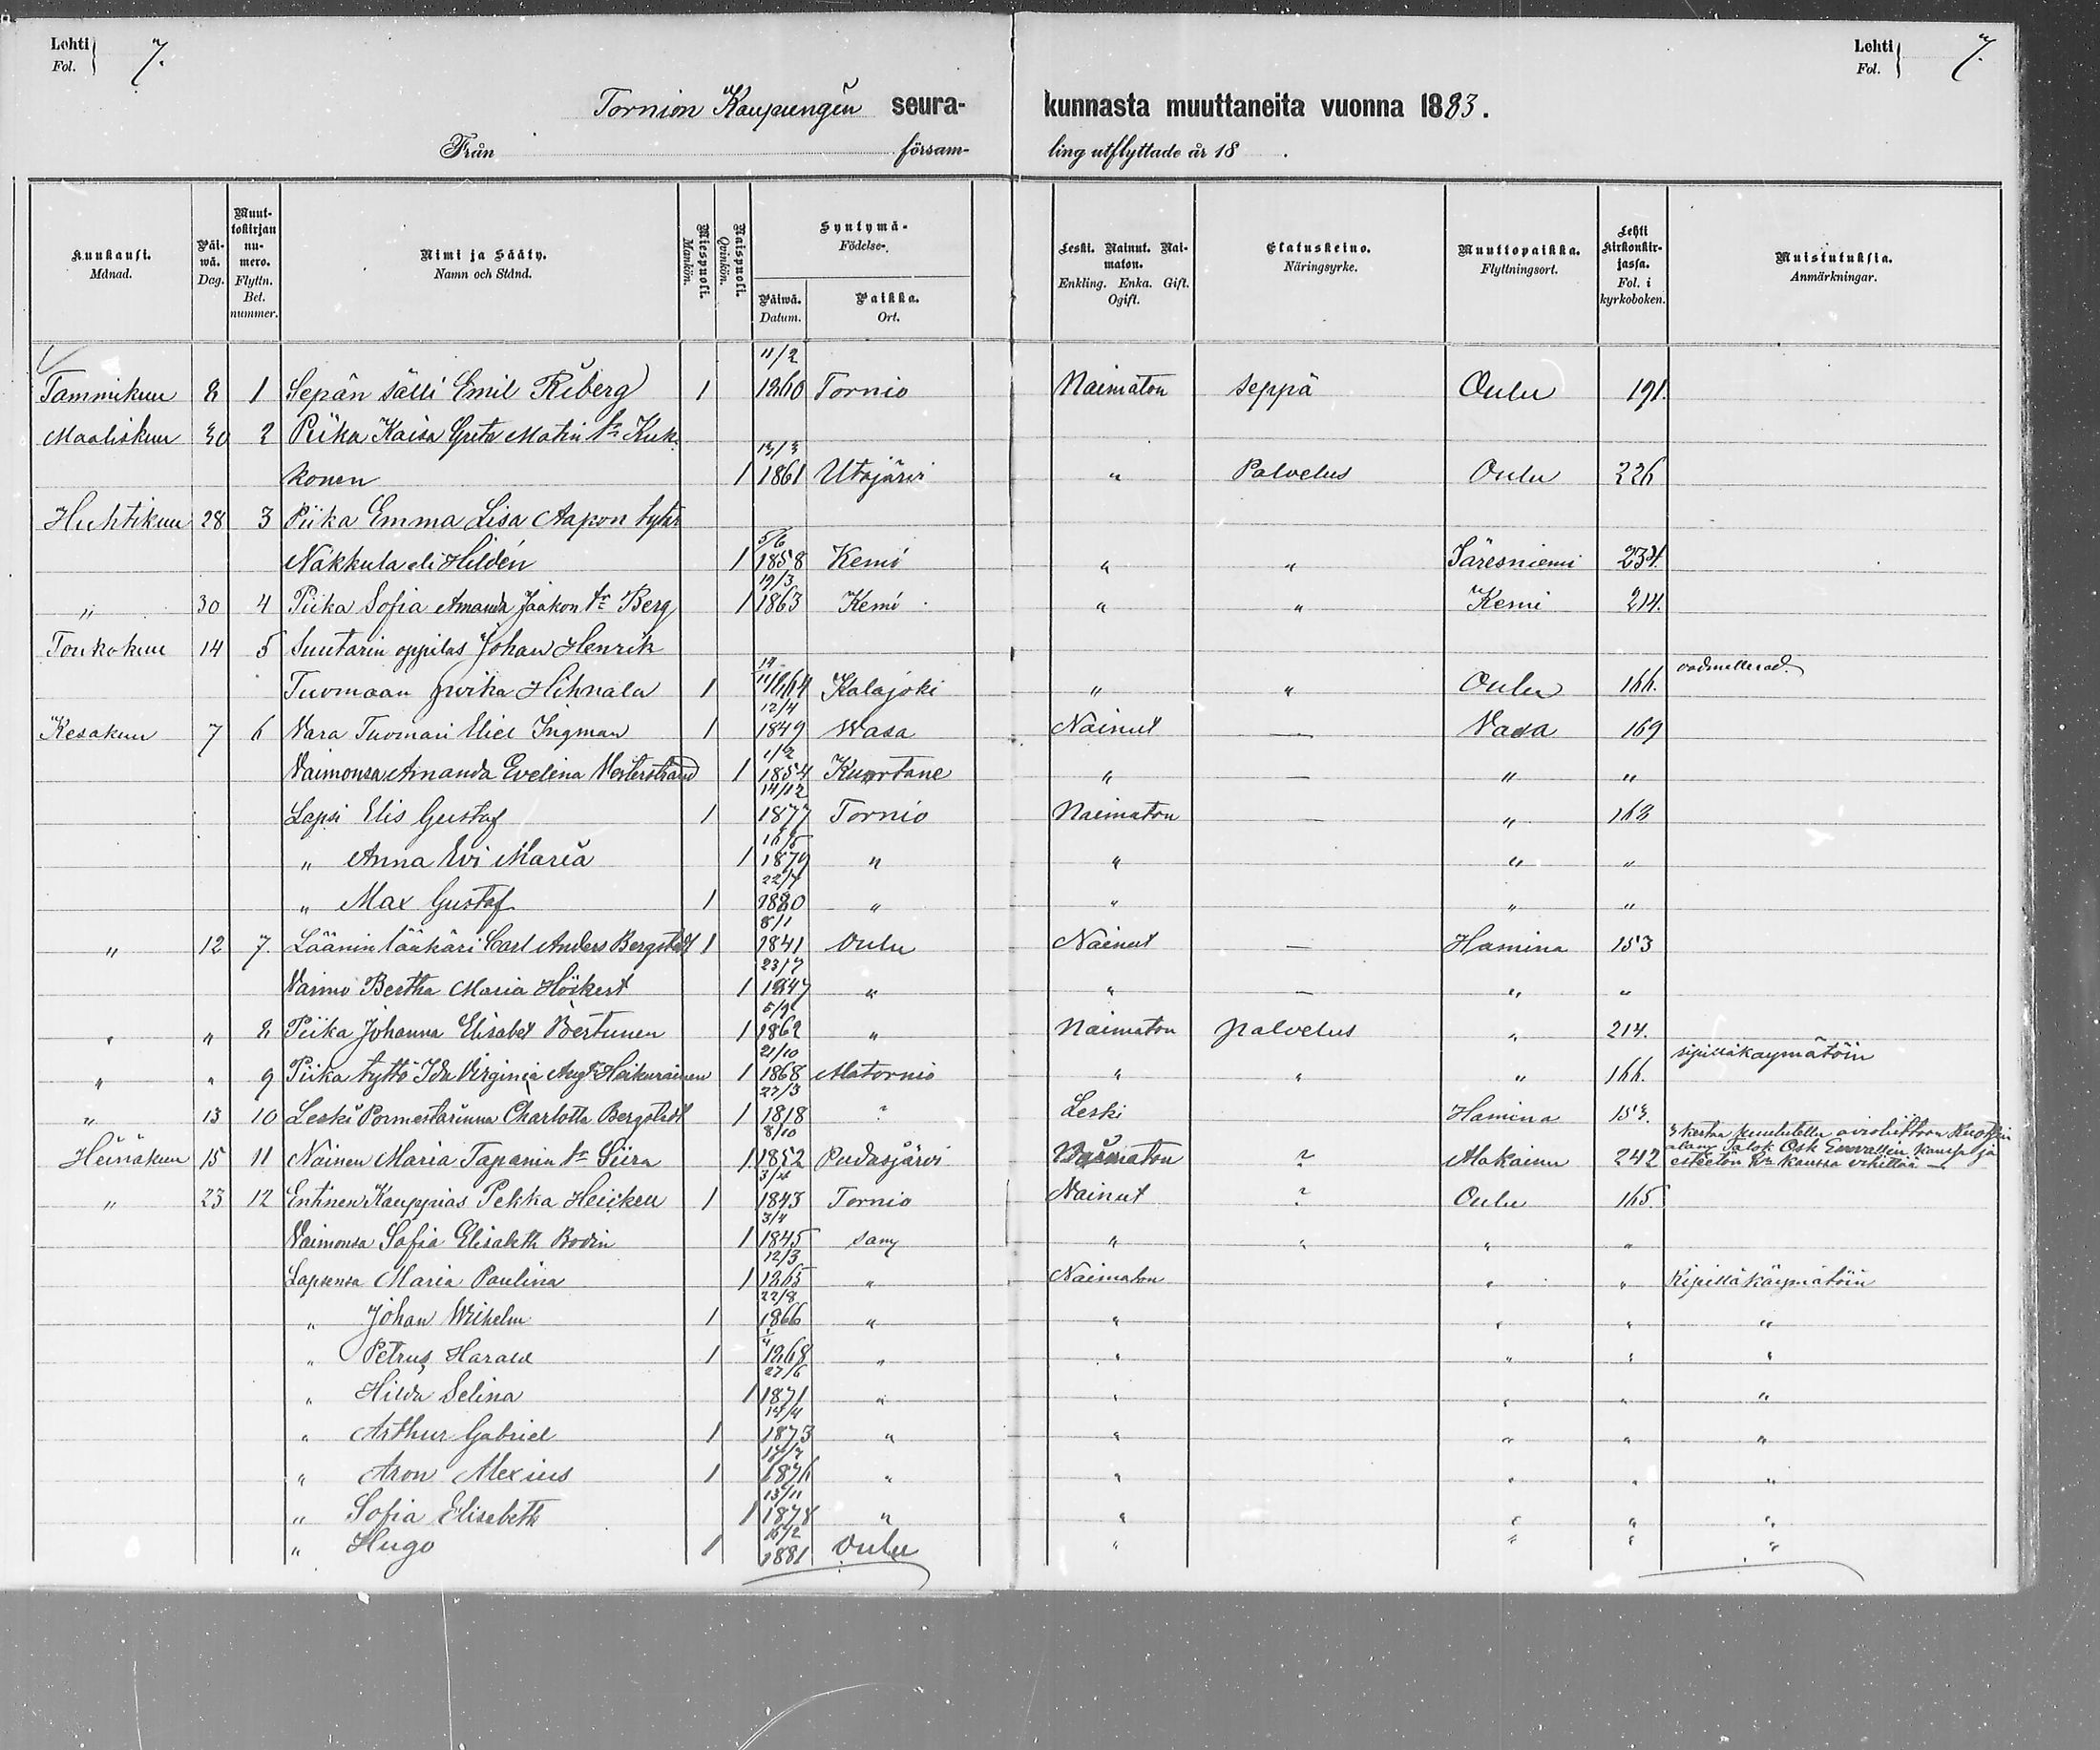 Lehti Fol. 7.
Lehti Fol. 7.
Tornion Kaupungin seura- kunnasta muuttaneita vuonna 1883.
Från försam- ling utflyttade år 18 .
Kuukausi. Månad.
Päiwä. Dag.
Muuttokirjan numero. Flyttn. Bet. nummer.
Nimi ja Sääty. Namn och Stånd.
Miespuoli. Mankön.
Naispuoli. Qvinkön.
Syntymä- Födelse-.
Päiwä. Datum.
Paikka. Ort.
Leski. Nainut. Naimaton. Enkling. Enka. Gift. Ogift.
Elatuskeino. Näringsyrke.
Muuttopaikka. Flyttningsort.
Lehti kirkonkirjassa. Fol. i kyrkoboken.
Muistutuksia. Anmärkningar.
Tammikuu 8 1 Sepän sälli Emil Riberg 1 11/2 1860 Tornio Naimaton seppä Oulu 191.
Maaliskuu 30 2 Piika Kaisa Greta Matin tr Kuk
konen 1 13/3 1861 Utajärvi " Palvelus Oulu 226
Huhtikuu 28 3 Piika Emma Lisa Aapon tytär
Nakkula eli Hildén 1 5/6 1858 Kemi " " Säresniemi 234.
" 30 4 Piika Sofia Amanda Jaakon tr Berg 1 19/3 1863 Kemi " " Kemi 214.
Toukokuu 14 5 Suutarin oppilas Johan Henrik
Tuomaan poika Hihnala 1 1864 Kalajoki " " Oulu 166.
Kesäkuu 7 6 Vara Tuomari Eliel Ingman 1 12/4 1849 Wasa Nainut — Vasa 169
Vaimonsa Amanda Evelina Westerstrand 1 1854 Kuortane " — " "
Lapsi Elis Gustaf 1 14/12 1877 Tornio Naimaton — " 168
" Anna Evi Maria 1 16/5 1879 " " " "
" Max Gustaf 1 22/4 1880 " " " "
" 12 7. Läänin lääkäri Carl Anders Bergstedt 1 8/1 1841 Oulu Nainut — Hamina 153
Vaimo Bertha Maria Höckert 1 23/7 1847 " " — " "
" " 8 Piika Johanna Elisabet Poertunen 1 5/9 1862 " Naimaton palvelus " 214.
" " 9 Piika tyttö Ida Virginia Aug. Heikurainen 1 21/10 1868 Alatornio " " " 166. ripillä kaymätöin
" 13 10 Leski Pormestarinna Charlotta Bergstedt 1 27/3 1818 ? Leski Hamina 153.
Heinäkuu 15 11 Nainen Maria Tapanin tr Siira 1 8/10 1852 Pudasjärvi Naimaton ? Alakainu 242 3 kertaa kuulutettu avioliittoon
" 23 12 Entinen Kauppias Pekka Heicken 1 1843 Tornio Nainut ? Oulu 165
Vaimonsa Sofia Elisabeth Bodin 1 3/4 1845 samg " " " "
Lapsensa Maria Paulina 1 12/3 1865 " Naimaton " " Ripillä käymätöin
" Johan Wilhelm 1 22/8 1866 " " " " "
" Petrus Harald 1 1868 " " " " "
" Hilda Selina 1 27/6 1871 " " " " "
" Arthur Gabriel 1 1873 " " " " "
" Aron Alexius 1 1876 " " " " "
" Sofia Elisabeth 1 13/11 1878 " " " " "
" Hugo 1 1881 Oulu " " " "